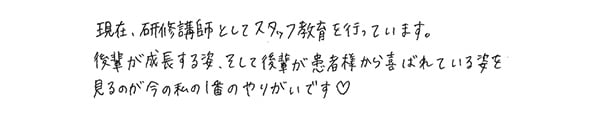 現在、研修講師としてスタッフ教育を行っています。
後輩が成長する姿、そして後輩が患者様から喜ばれている姿を
見るのが今の私の1番のやりがいです♡